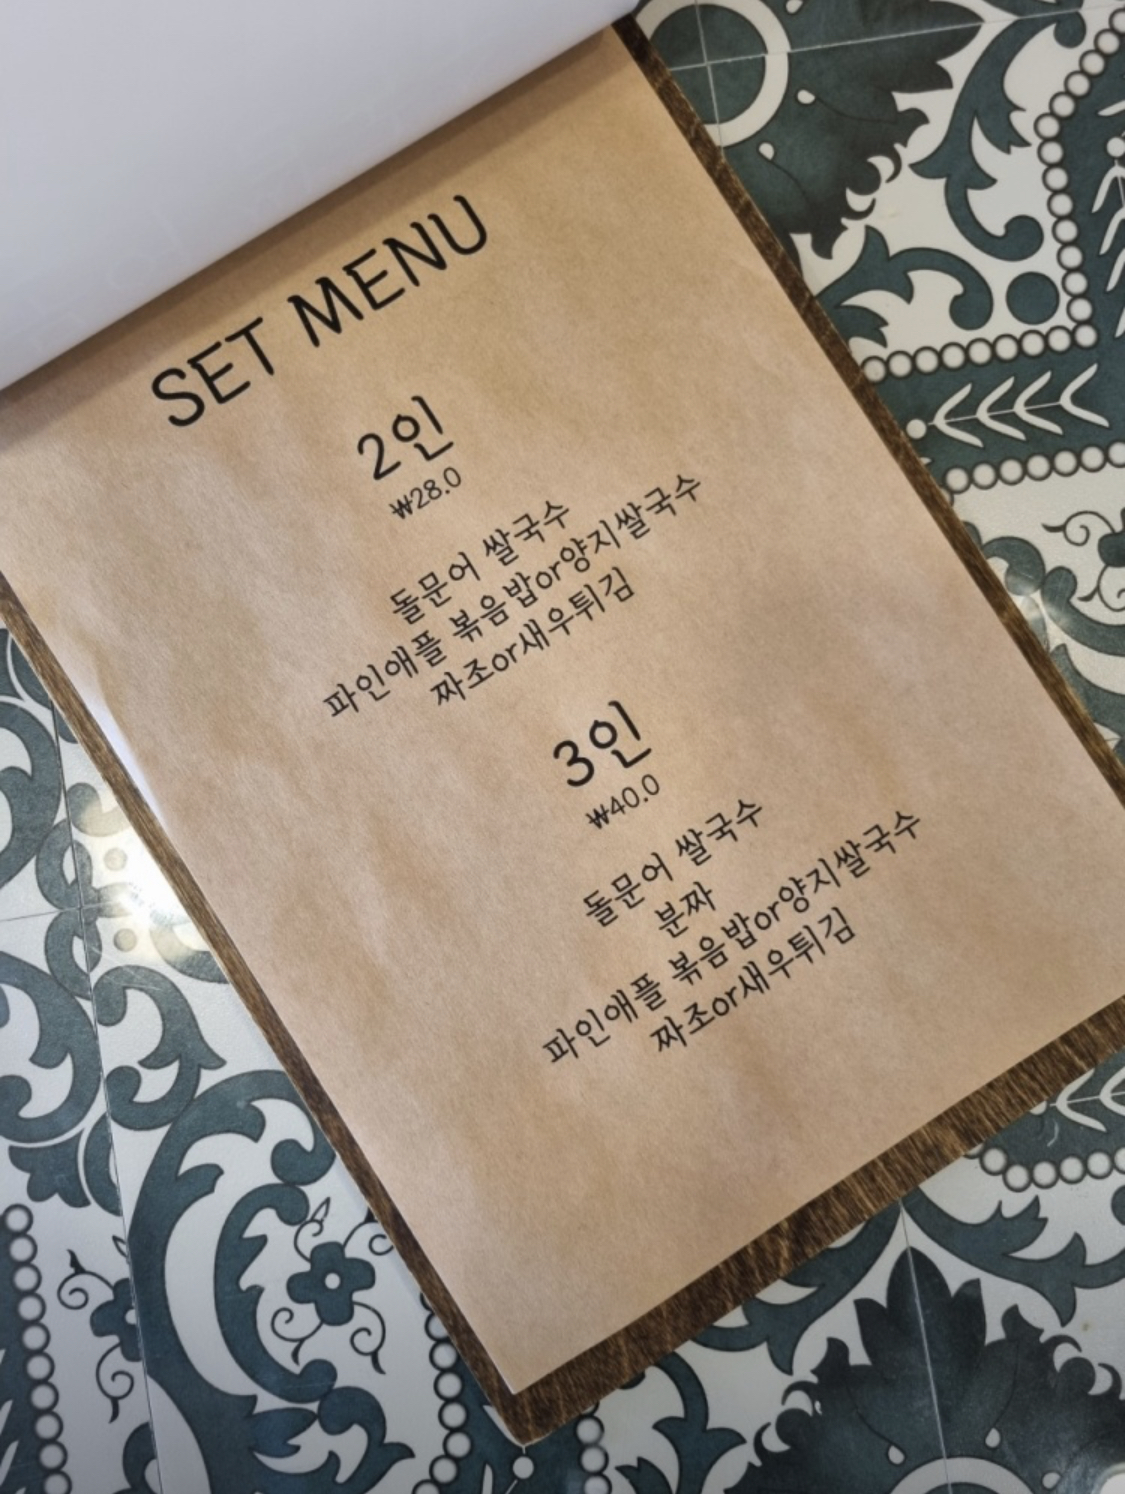 SET MENU
2인
₩28.0
돌문어 쌀국수
파인애플 볶음밥or양지쌀국수
짜조or새우튀김
3인
₩40.0
돌문어 쌀국수
분짜
파인애플 볶음밥or양지쌀국수
짜조or새우튀김